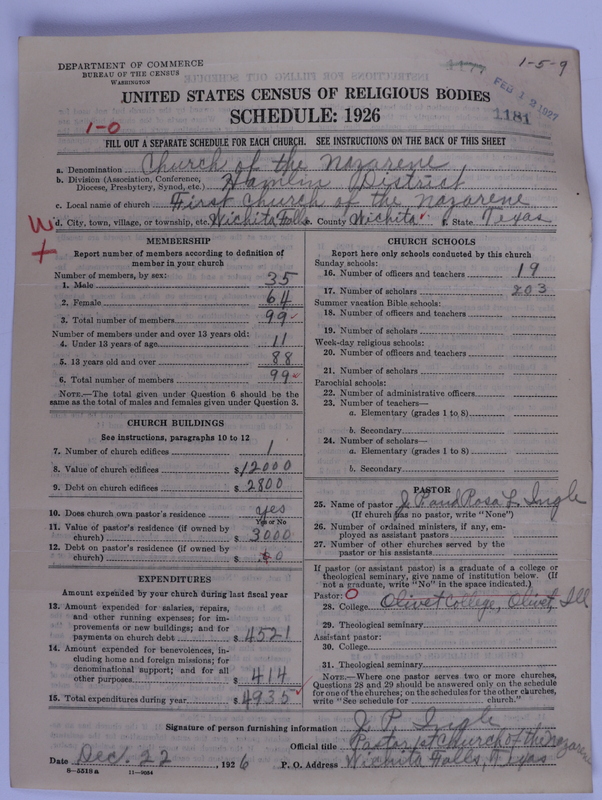 DEPARTMENT OF COMMERCE
BUREAU OF THE CENSUS
WASHINGTON
1177
1-5-9
FEB 12 1927
1181
UNITED STATES CENSUS OF RELIGIOUS BODIES
SCHEDULE: 1926
1-0
FILL OUT A SEPARATE SCHEDULE FOR EACH CHURCH. SEE INSTRUCTIONS ON THE BACK OF THIS SHEET
a. Denomination Church of the Nazarene
b. Division (Association, Conference, Diocese, Presbytery, Synod, etc.) Hamlin District
c. Local name of church First Church of the Nazarene
d. City, town, village, or township, etc. Wichita Falls e. County Wichita f. State Texas
MEMBERSHIP
Report number of members according to definition of
member in your church
Number of members, by sex:
1. Male 35
2. Female 64
3. Total number of members 99
Number of members under and over 13 years old:
4. Under 13 years of age 11
5. 13 years old and over 88
6. Total number of members 99
NOTE.—The total given under Question 6 should be
same as the total of males and females given under Question 3.
CHURCH BUILDINGS
See instructions, paragraphs 10 to 12
7. Number of church edifices 1
8. Value of church edifices $12000
9. Debt on church edifices $2800
10. Does church own pastor's residence yes
Yes or No
11. Value of pastor's residence (if owned by
church) $3000
12. Debt on pastor's residence (if owned by
church) $0
EXPENDITURES
Amount expended by your church during last fiscal year
13. Amount expended for salaries, repairs,
and other running expenses; for im-
provements or new buildings; and for
payments on church debt $4521
14. Amount expended for benevolences, in-
cluding home and foreign missions; for
denominational support; and for all
other purposes $414
15. Total expenditures during year $4935
CHURCH SCHOOLS
Report here only schools conducted by this church
Sunday schools:
16. Number of officers and teachers 19
17. Number of scholars 203
Summer vacation Bible schools:
18. Number of officers and teachers
19. Number of scholars
Week-day religious schools:
20. Number of officers and teachers
21. Number of scholars
Parochial schools:
22. Number of administrative officers
23. Number of teachers—
a. Elementary (grades 1 to 8)
b. Secondary
24. Number of scholars—
a. Elementary (grades 1 to 8)
b. Secondary
PASTOR
25. Name of pastor J. P. and Rosa L. Ingle
(If church has no pastor, write "None")
26. Number of ordained ministers, if any, em-
ployed as assistant pastors
27. Number of other churches served by the
pastor or his assistants
If pastor (or assistant pastor) is a graduate of a college or
theological seminary, give name of institution below. (If
not a graduate, write "No" in the space indicated.)
Pastor: O
28. College Olivet College, Olivet, Ill
29. Theological seminary
Assistant pastor:
30. College
31. Theological seminary
NOTE.—Where one pastor serves two or more churches,
Questions 28 and 29 should be answered only on the schedule
for one of the churches; on the schedules for the other churches,
write "See schedule for church."
Signature of person furnishing information J. P. Ingle
Official title Pastor, 1st Church of the Nazarene
Date Dec. 22, 1926 P. O. Address Wichita Falls, Texas
8—5518a 11—9034